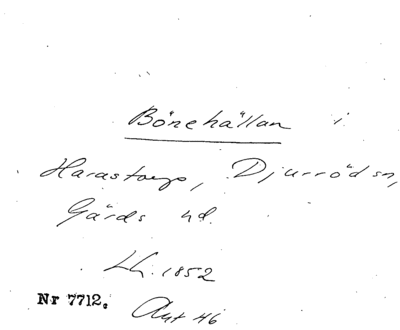 Bönehällan i
Harastorp, Djurröd sn,
Gärds hd.
Lh. 1852
Nr 7712. Ant 46